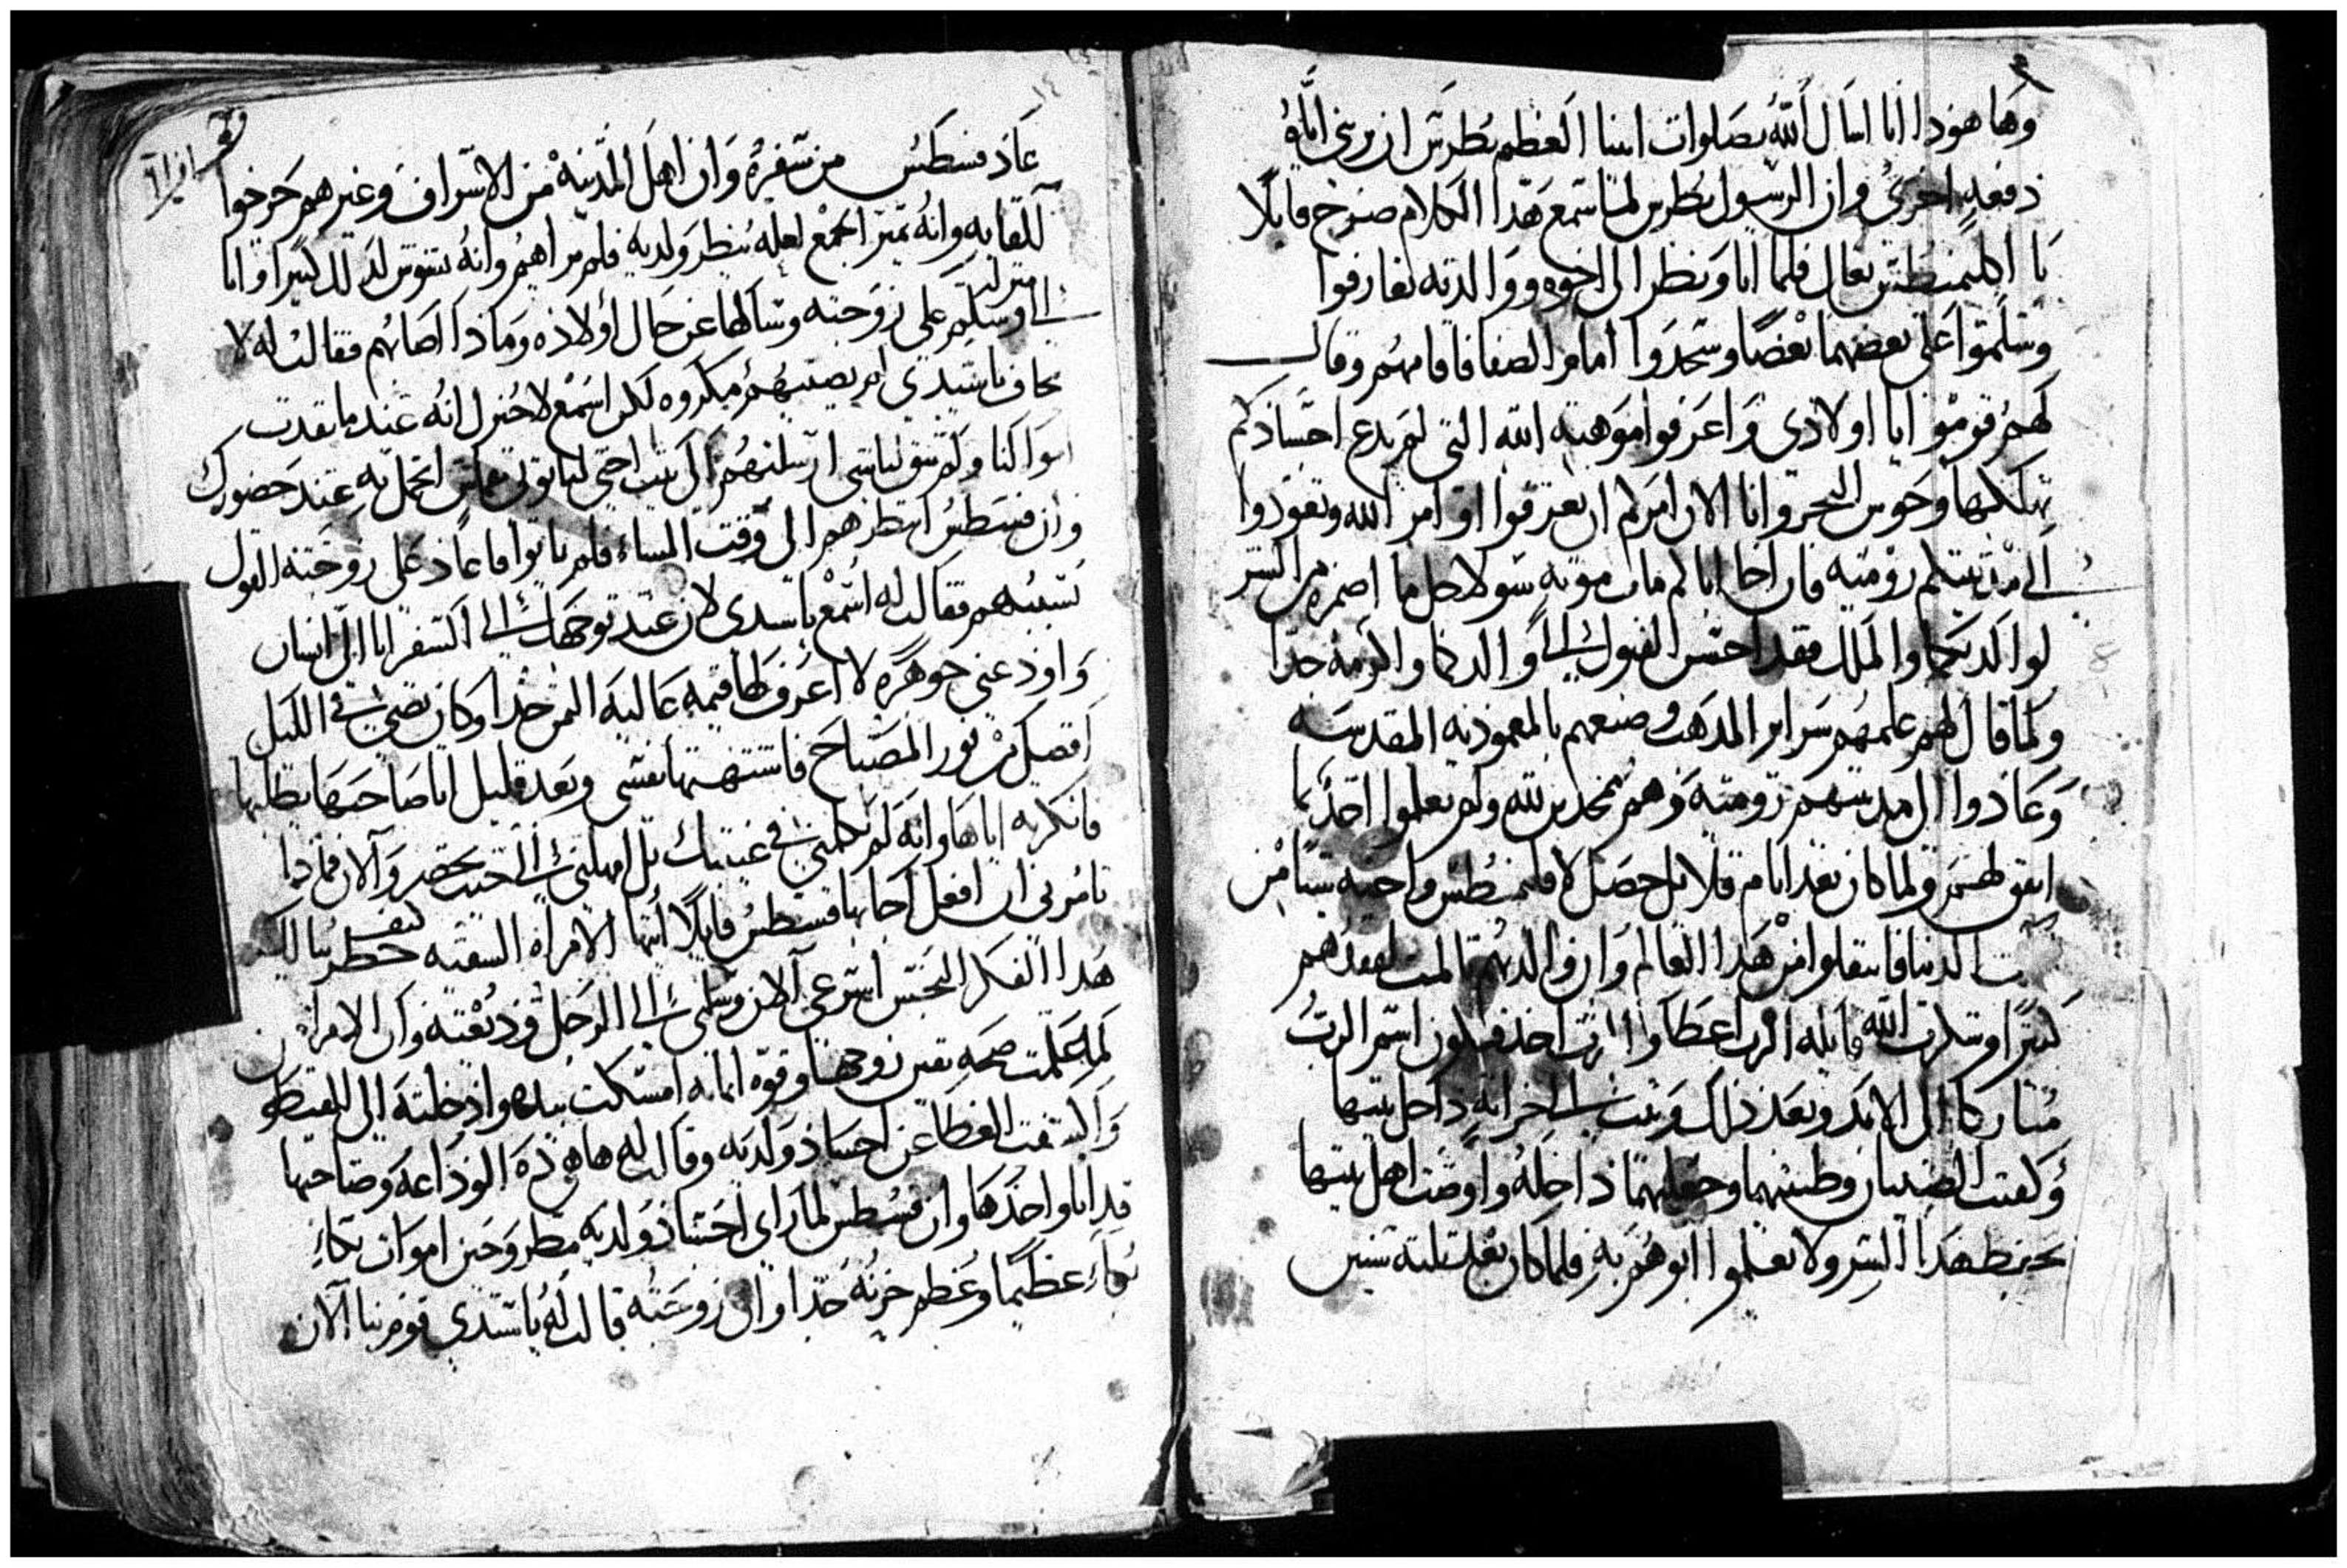 وها هوذا انا اسال الله بصلوات ابينا العظيم بطرس ان يريني اياه
دفعه اخرى وان الرسول بطرس لما سمع هذا الكلام صرخ قايلا
يا اكليمنطس تعال فلما اتا ونظر الى اخوه ووالدته تعارفوا
وسلموا على بعضهما بعضا وسجدوا امام الصفا فاقامهم وقال
لهم قوموا ايا اولادي واعرفوا موهبة الله التي لم يدع احسادكم
تهلكها وحوس البحر وانا الان امركم ان تعرفوا اوامر الله وتعودوا
الى مدينتكم رومية فان اخا اباكم مات موته سو لاجل ما اضمره من الشر
لوالدتكما والملك فقد احسن القبول الى والدكما واكرمه جدا
ولما قال لهم علمهم سراير المدهب وصبغهم بالمعمودية المقدسه
وعادوا الى مدينتهم رومية وهم يمجدين لله ولم يعلموا احد بما
اتفق لهم ولما كان بعد ايام قلايل حصل لاقليمنطس واخيه شيا من
الدنيا فانتقلوا من هذا العالم وان والدتهم تالمت لفقدهم
كتيرا وشكرت الله قايله الرب اعطا والرب اخذ فيكون اسم الرب
مباركا الى الابد وبعد ذلك وتبت الى خزانة داخل بيتها
وكفنت الصبيان وطيبتهما وجعلتهما داخله واوصت اهل بيتها
بحفظ هذا السر ولا يعلموا ابوهم به فلما كان بعد تلتة سنين
عاد فسطس من سفره وان اهل المدينة من الاشراف وغيرهم خرجوا
للقايه وانه ميز الجمع لعله ينظر ولديه فلم يراهم وانه تشوش لذلك كتيرا واتا
الى منزله وسلم على زوجته وسالها عن حال اولاده وماذا اصابهم فقالت له لا
تخاف يا سيدي لم يصيبهم مكروه لكن اسمع لاخبرك انه عندما نفدت
اموالنا ولم يبق لنا شي ارسلتهم الى بيت اختي لياتوني بقماش اتجمل به عند حضورك
وان فسطس انتظرهم الى وقت المساء فلم ياتوا فاعاد على زوجته القول
بسببهم فقالت له اسمع يا سيدي لان عند توجهك الى السفر اتا الي انسان
واودعني جوهرة لا اعرف لها قيمه غالية التمن جدا وكان تضي في الليل
افضل من نور المصباح فاشتهتها نفسي وبعد قليل اتا صاحبها يطلبها
فانكرته اياها وانه لم يكلمني في غيبتك بل امهلني الى حيت تحضر والان فماذا
تامرني ان افعل اجابها فسطس قايلا ايتها الامراه السفيه كيف خطر ببالك
هذا الفكر النجس اسرعي الان وسلمي الى الرجل وديعته وان الامراه
لما علمت صحه يقين زوجها وقوة ايمانه امسكت بيده وادخلته الى القيطون
وكشفت الغطا عن اجساد ولديه وقالت له هاهي ذه الوداعه وصاحبها
قد اتا واخذها وان فسطس لما راى اجساد ولديه مطروحين اموات بكاء
بكاء عظيما وعظم حزنه جدا وان زوجته قالت له يا سيدي قوم بنا الان